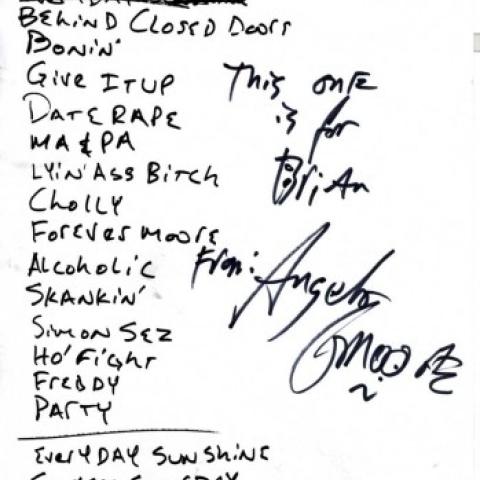 BEHIND CLOSED DOORS
BONIN'
GIVE IT UP
DATE RAPE
MA & PA
LYIN' ASS BITCH
CHOLLY
FOREVER MOORE
ALCOHOLIC
SKANKIN'
SIMON SEZ
HO' FIGHT
FREDDY
PARTY
EVERYDAY SUNSHINE
This one
is for
Brian
From: Angelo
Moore